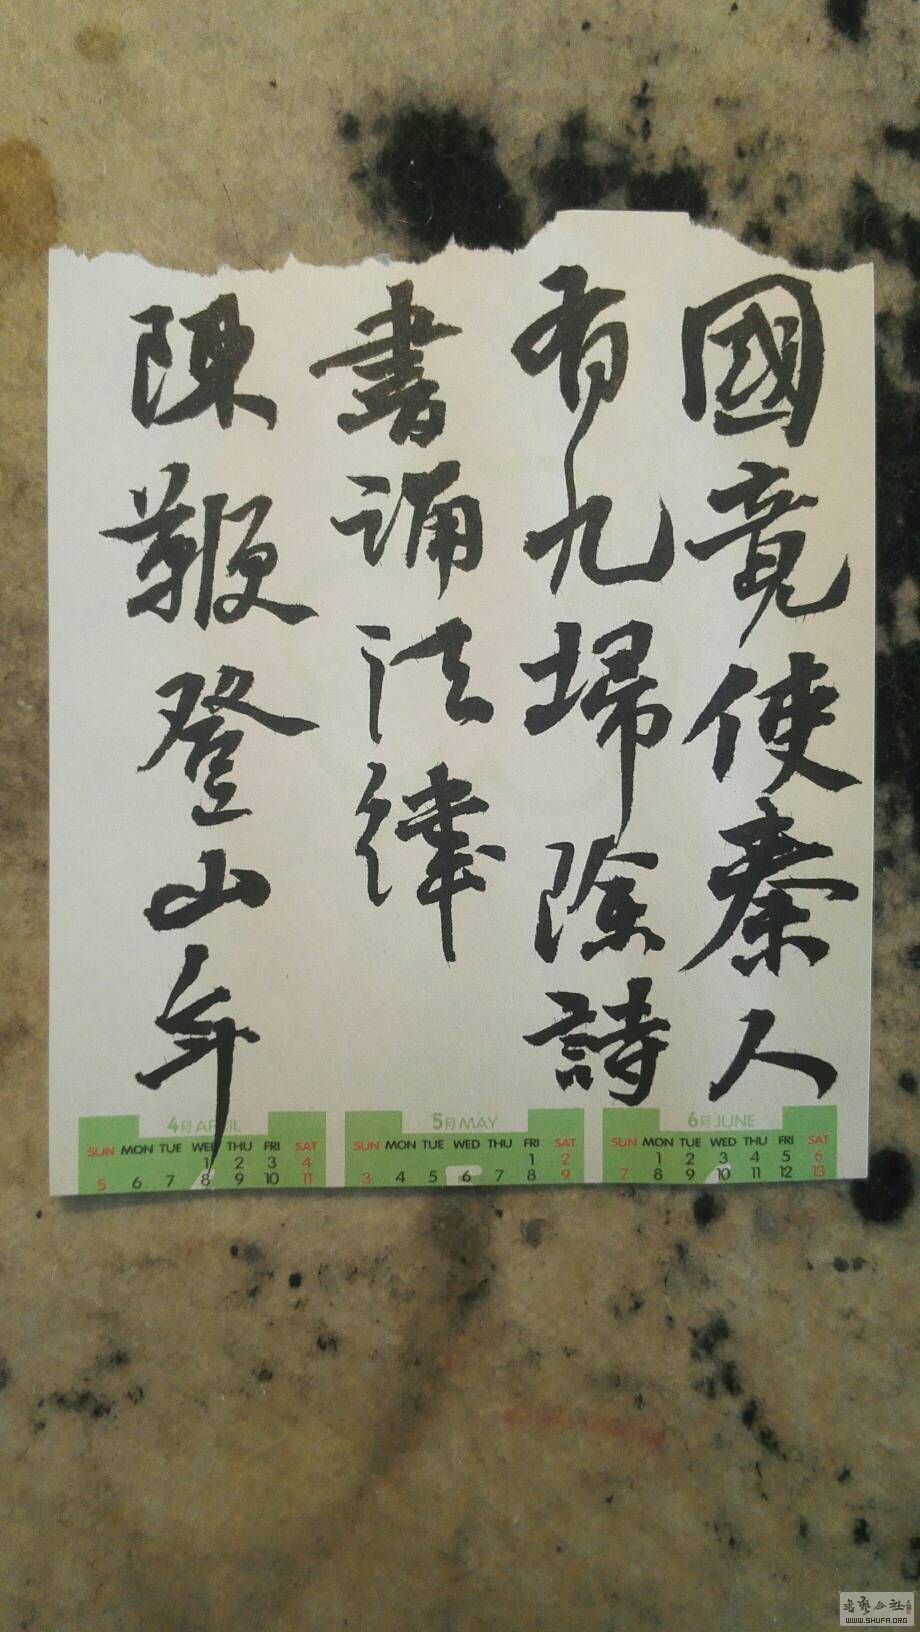 國竟使秦人
有九掃除詩
書誦法律
陳鞭登山年
4月 APRIL
SUN MON TUE WED THU FRI SAT
1 2 3 4
5 6 7 8 9 10 11
5月 MAY
SUN MON TUE WED THU FRI SAT
1 2
3 4 5 6 7 8 9
6月 JUNE
SUN MON TUE WED THU FRI SAT
1 2 3 4 5 6
7 8 9 10 11 12 13
書藝公社
WWW.SHUFA.ORG